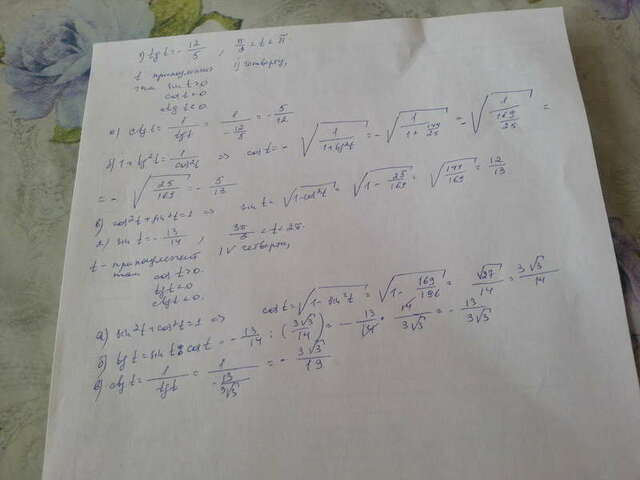 1) tg t = - 12/5 , π/2 < t < π
t принадлежит II четверти,
sin t > 0
cos t < 0
ctg t < 0
а) ctg t = 1/tg t = 1/(-12/5) = - 5/12
б) 1 + tg²t = 1/cos²t => cos t = - √(1/(1+tg²t)) = - √(1/(1+144/25)) = - √(1/(169/25)) =
= - √(25/169) = - 5/13
в) cos²t + sin²t = 1 => sin t = √(1-cos²t) = √(1 - 25/169) = √(144/169) = 12/13
2) sin t = - 13/14 , 3π/2 < t < 2π
t - принадлежит IV четверти,
cos t > 0
tg t < 0
ctg t < 0
а) sin²t + cos²t = 1 => cos t = √(1 - sin²t) = √(1 - 169/196) = √27/14 = 3√3/14
б) tg t = sin t : cos t = - 13/14 : (3√3/14) = - 13/14 · 14/3√3 = - 13/3√3
в) ctg t = 1/tg t = 1/(-13/3√3) = - 3√3/13